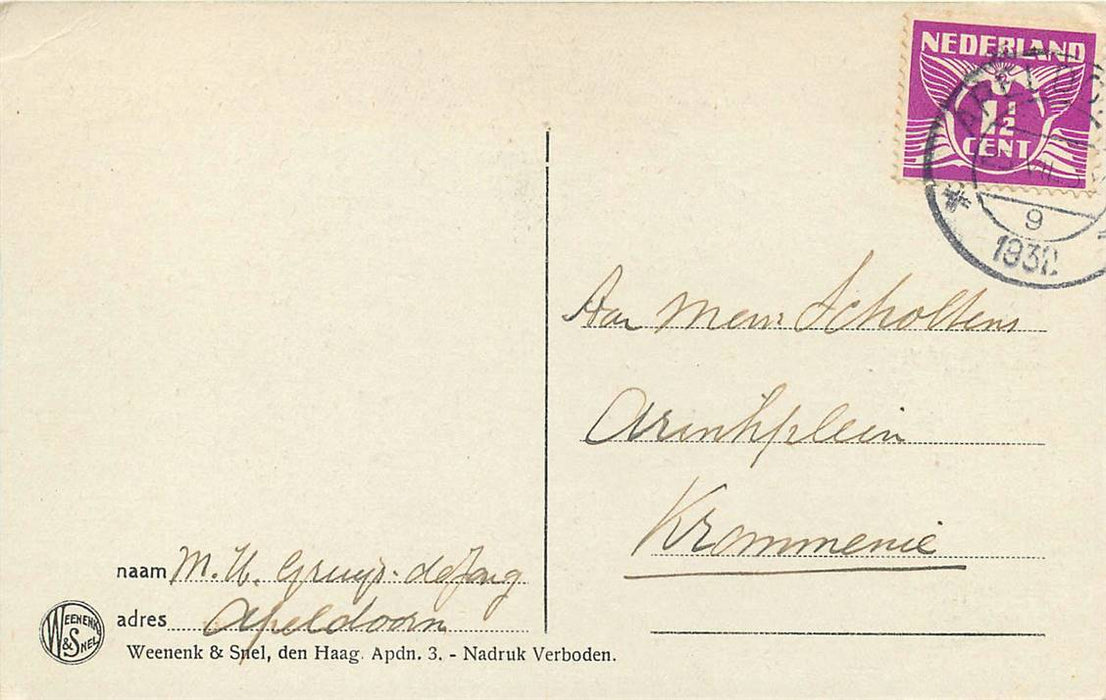 NEDERLAND
1½
CENT
APELDO
9
1932
Aan Mevr Scholtens
Krommenie
naam M. H. Gruijs-de Jong
adres Apeldoorn
WEENENK & SNEL
Weenenk & Snel, den Haag. Apdn. 3. - Nadruk Verboden.